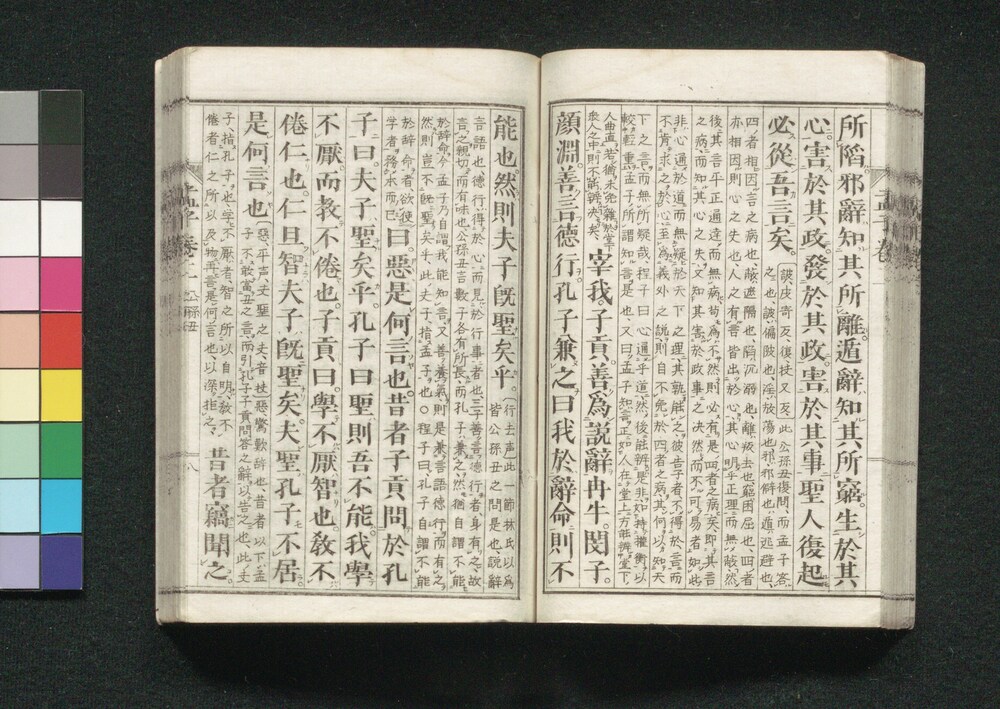 所陷邪辭知其所離遁辭知其所窮生於其
心害於其政發於其政害於其事聖人復起
必從吾言矣
詖皮寄反復扶又反此公孫丑復問而孟子答
之也詖偏陂也淫放蕩也邪邪僻也遁逃避也
四者相因言之病也蔽遮隔也陷沉溺也離叛去也窮困屈也四者
亦相因則心之失也人之有言皆出於心其心明乎正理而無蔽然
後其言平正通達而無病苟為不然則必有是四者之病矣即其言
之病而知其心之失又知其害於政事之決然而不可易者如此
非心通於道而無疑於天下之理其孰能之彼告子者不得於言而
不肯求之於心至為義外之說則自不免於四者之病其何以知天
下之言而無所疑哉程子曰心通乎道然後能辨是非如持權衡以
較輕重孟子所謂知言是也又曰孟子知言正如人在堂上方能辨堂下
人曲直若猶未免雜於堂下
衆人之中則不能辨決矣
宰我子貢善為說辭冉牛閔子
顏淵善言德行孔子兼之曰我於辭命則不
能也然則夫子既聖矣乎
行去声此一節林氏以為
皆公孫丑之問是也說辭
言語也德行得於心而見於行事者也三子善言德行者身有之故
言之親切而有味也公孫丑言數子各有所長而孔子兼之然猶自謂不能
於辭命今孟子乃自謂我能知言又善養氣則是兼言語德行而有之
然則豈不既聖矣乎此夫子指孟子也○程子曰孔子自謂不能
於辭命者欲使
學者務本而已
曰惡是何言也昔者子貢問於孔
子曰夫子聖矣乎孔子曰聖則吾不能我學
不厭而教不倦也子貢曰學不厭智也教不
倦仁也仁且智夫子既聖矣夫聖孔子不居
是何言也
惡平声夫聖之夫音扶惡驚歎辞也昔者以下孟
子不敢當丑之言而引孔子子貢問答之辭以告之也此夫
子指孔子也學不厭者智之所以自明教不
倦者仁之所以及物再言是何言也以深拒之
昔者竊聞之
公孫丑
八